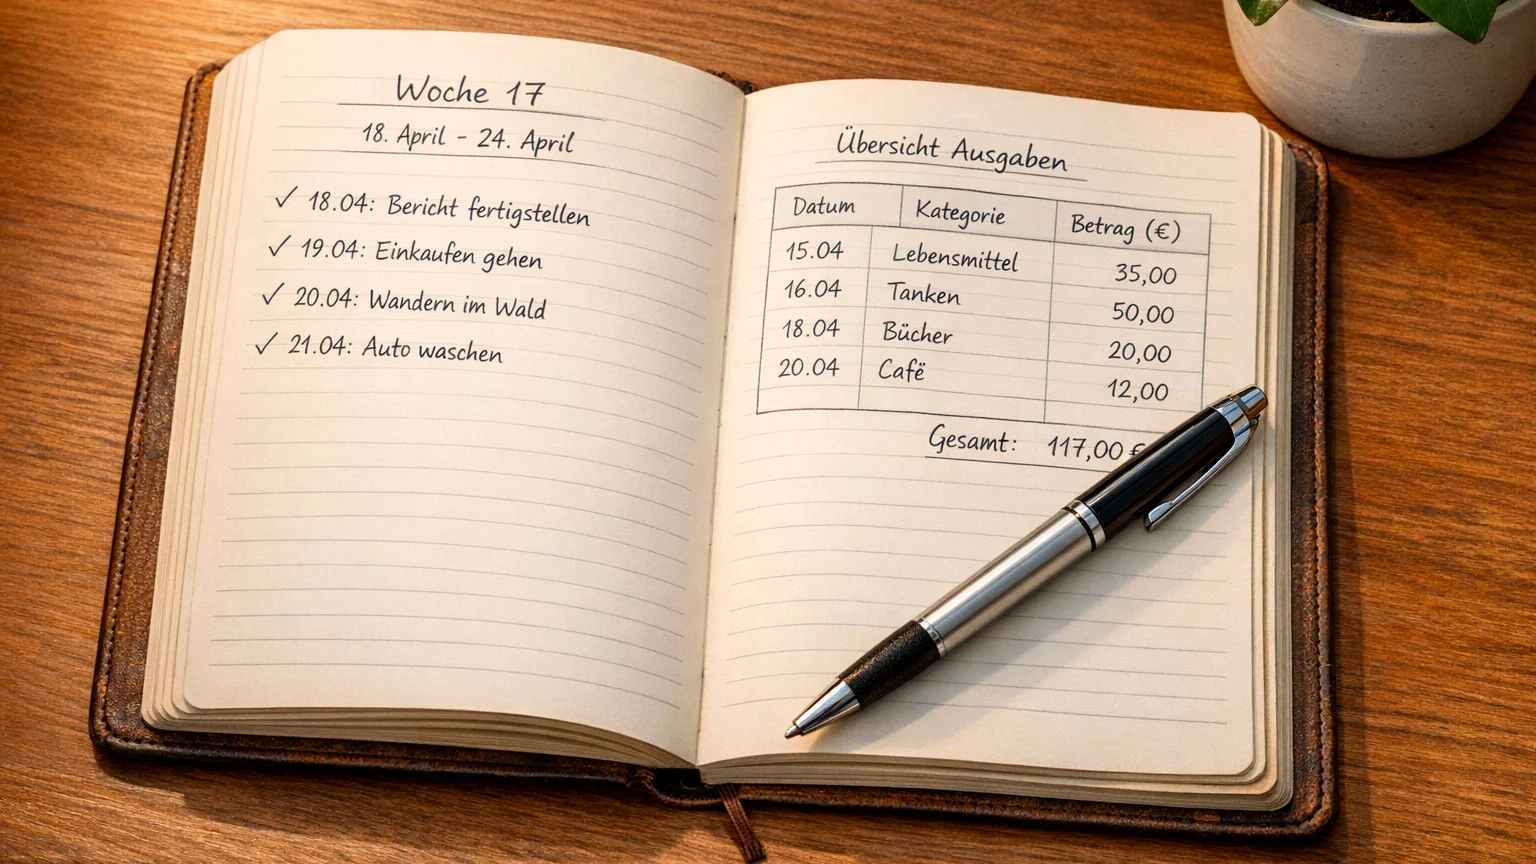 Woche 17
18. April - 24. April
✓ 18.04: Bericht fertigstellen
✓ 19.04: Einkaufen gehen
✓ 20.04: Wandern im Wald
✓ 21.04: Auto waschen
Übersicht Ausgaben
Datum Kategorie Betrag (€)
15.04 Lebensmittel 35,00
16.04 Tanken 50,00
18.04 Bücher 20,00
20.04 Cafë 12,00
Gesamt: 117,00 €